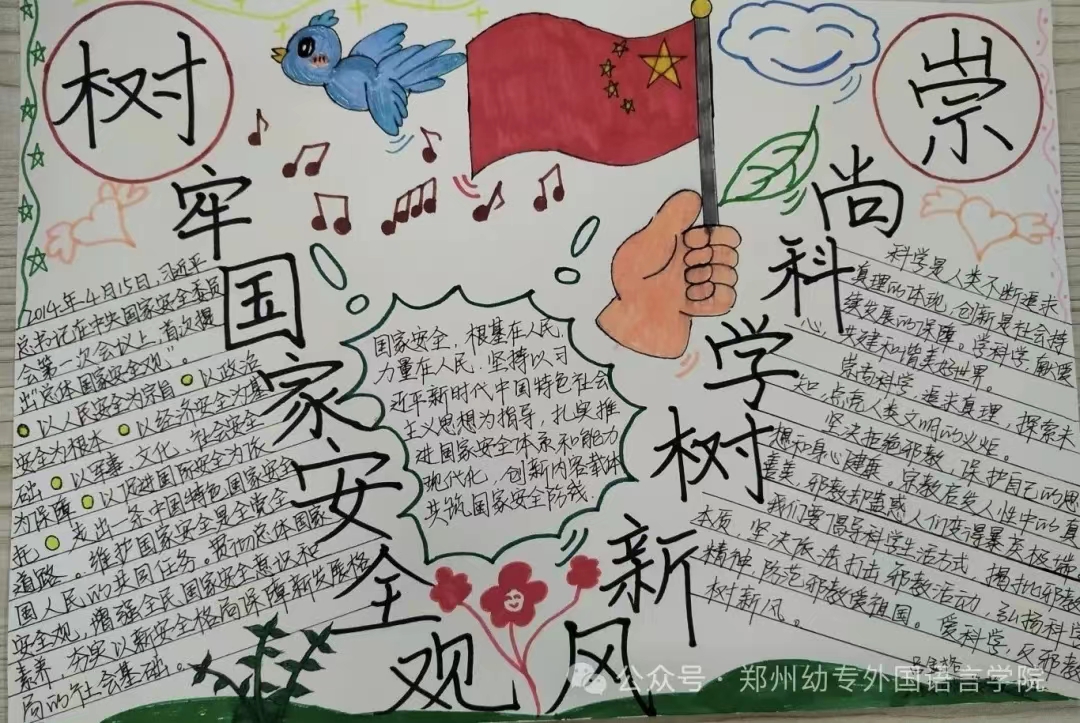 树牢国家安全观
崇尚科学树新风
2014年4月15日,习近平
总书记在中央国家安全委员
会第一次会议上,首次提
出“总体国家安全观”。
以人民安全为宗旨 以政治
安全为根本 以经济安全为基
础 以军事、文化、社会安全
为保障 以促进国家安全为依
托 走出一条中国特色国家安全
道路。维护国家安全是全党全
国人民的共同任务。贯彻总体国家
安全观,增强全民国家安全意识和
素养,夯实以新安全格局保障新发展格
局的社会基础。
国家安全,根基在人民,
力量在人民.坚持以习
近平新时代中国特色社会
主义思想为指导,扎实推
进国家安全体系和能力
现代化,创新内容载体
共筑国家安全防线.
科学是人类不断追求
真理的体现,创新是社会持
续发展的保障。学科学,献爱
心,共建和谐美好世界。
崇尚科学,追求真理,探索未
知,点亮人类文明的火炬。
坚决拒绝邪教,保护自己的思
想和身心健康。宗教启发人性中的真
善美,邪教却蛊惑人们变得暴戾极端
我们要倡导科学生活方式,揭批邪教
本质,坚决依法打击邪教活动,弘扬科学
精神,防范邪教爱祖国。爱科学,反邪教
树新风。
公众号·郑州幼专外国语言学院